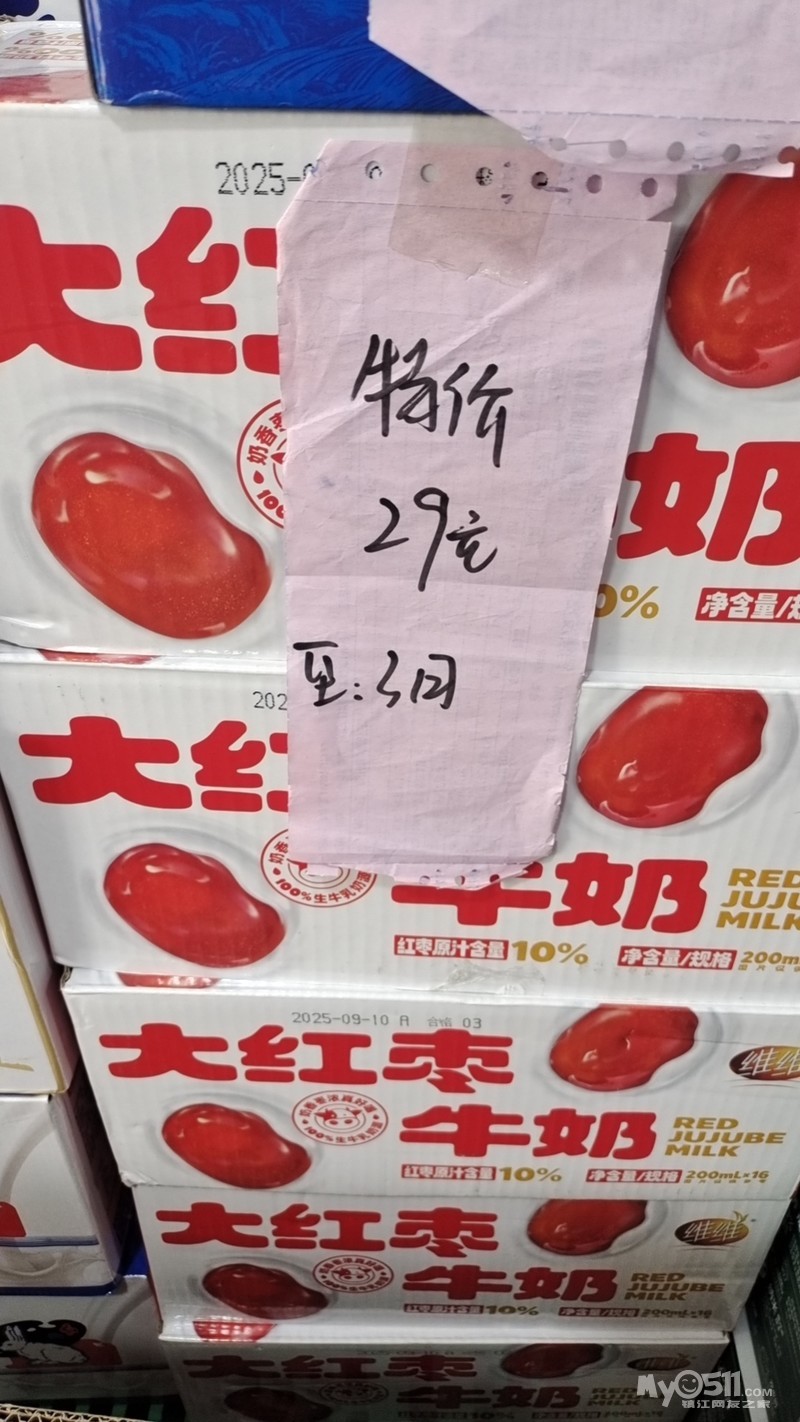 2025-0
大红
特价
29元
至:3日
奶香
100
牛奶
0%
净含量/规
202
大红
100%生牛乳奶源
牛奶
RED
JUJU
MILK
红枣原汁含量10%
净含量/规格 200m
2025-09-10 A 合格 03
大红枣
维维
奶香更浓真好喝
100%生牛乳奶源
牛奶
RED
JUJUBE
MILK
红枣原汁含量10%
净含量/规格 200mL×16
大红枣
维维
牛奶
RED
JUJUBE
MILK
红枣原汁含量10%
净含量/规格 200mL×16
2025-09-10
大红枣
牛奶
RED
MyO511.COM
镇江网友之家